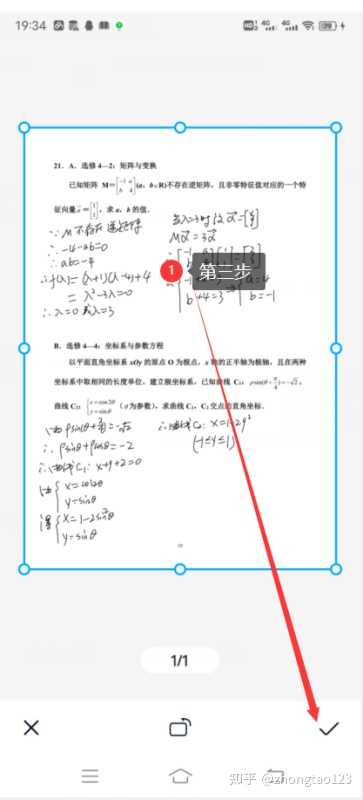 19:34
21. A. 选修 4—2: 矩阵与变换
已知矩阵 M=[-1 a; b 4](a, b∈R)不存在逆矩阵, 且非零特征值对应的一个特
征向量 α=[1; 1], 求 a, b 的值.
∵ M 不存在逆矩阵
∴ -4-ab=0
∴ ab=-4
∴ f(λ)=(λ+1)(λ-4)+4
= λ²-3λ=0
∴ λ=0 或 λ=3
Mα=3α
b+4=3
a=4
b=-1
1 第三步
B. 选修 4—4: 坐标系与参数方程
以平面直角坐标系 xOy 的原点 O 为极点, x 轴的正半轴为极轴, 且在两种
坐标系中取相同的长度单位, 建立极坐标系, 已知曲线 C₁: ρsin(θ+π/4)=-√2,
曲线 C₂: {x=cos2θ y=sinθ (θ为参数), 求曲线 C₁, C₂ 交点的直角坐标.
∴ ρsinθ+ρcosθ=-2
C₁: x+y+2=0
{x=cos2θ
y=sinθ
得{x=1-2sin²θ
y=sinθ
C₂: x=1-2y²
(-1≤y≤1)
1/1
知乎 @zhongtao123